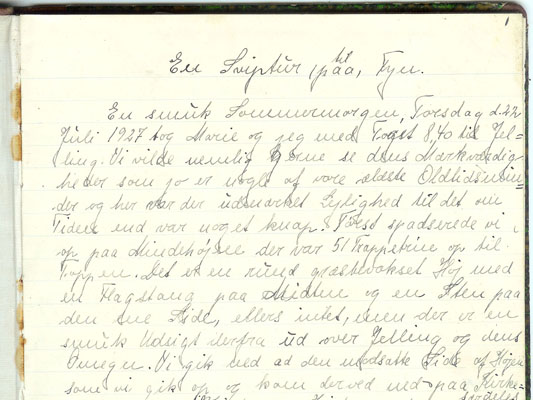 1
En Sviptur til paa, Fyn.
En smuk Sommermorgen, Torsdag d. 22
Juli 1927 tog Marie og jeg med Toget 8,40 til Jel=
ling. Vi vilde nemlig gerne se dens Mærkværdig
heder som jo er nogle af vore ældste Oldtidsmin=
der og her var der udmærket Lejlighed til det om
Tiden end var noget knap. Først spadserede vi
op paa Mindehøjene der var 51 Trappetrin op til
Toppen. Det er en rund græsbevokset Høj med
en Flagstang paa Midten og en Sten paa
den ene Side, ellers intet, men der er en
smuk Udsigt derfra ud over Jelling og dens
Omegn. Vi gik ned ad den modsatte Side af Højen
som vi gik op og kom derved ned paa Kirke=